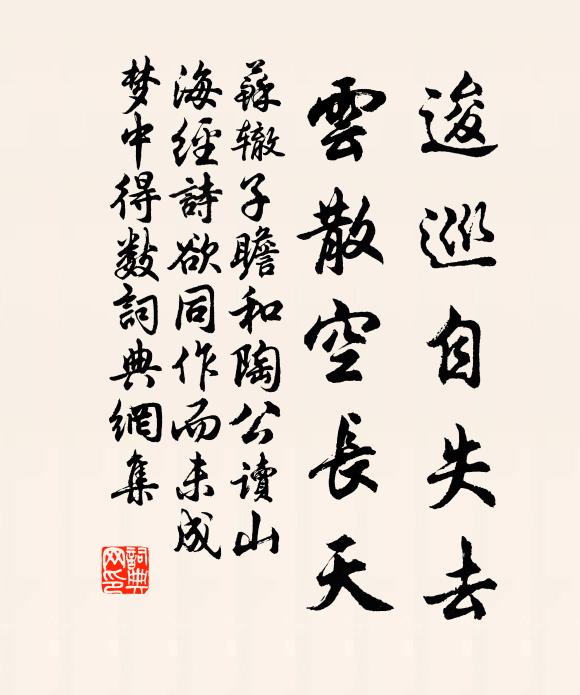 逡巡自失去
雲散空長天
蘇辙子瞻和陶公讀山
海經詩欲同作而未成
梦中得数詞典網集
詞典
网印